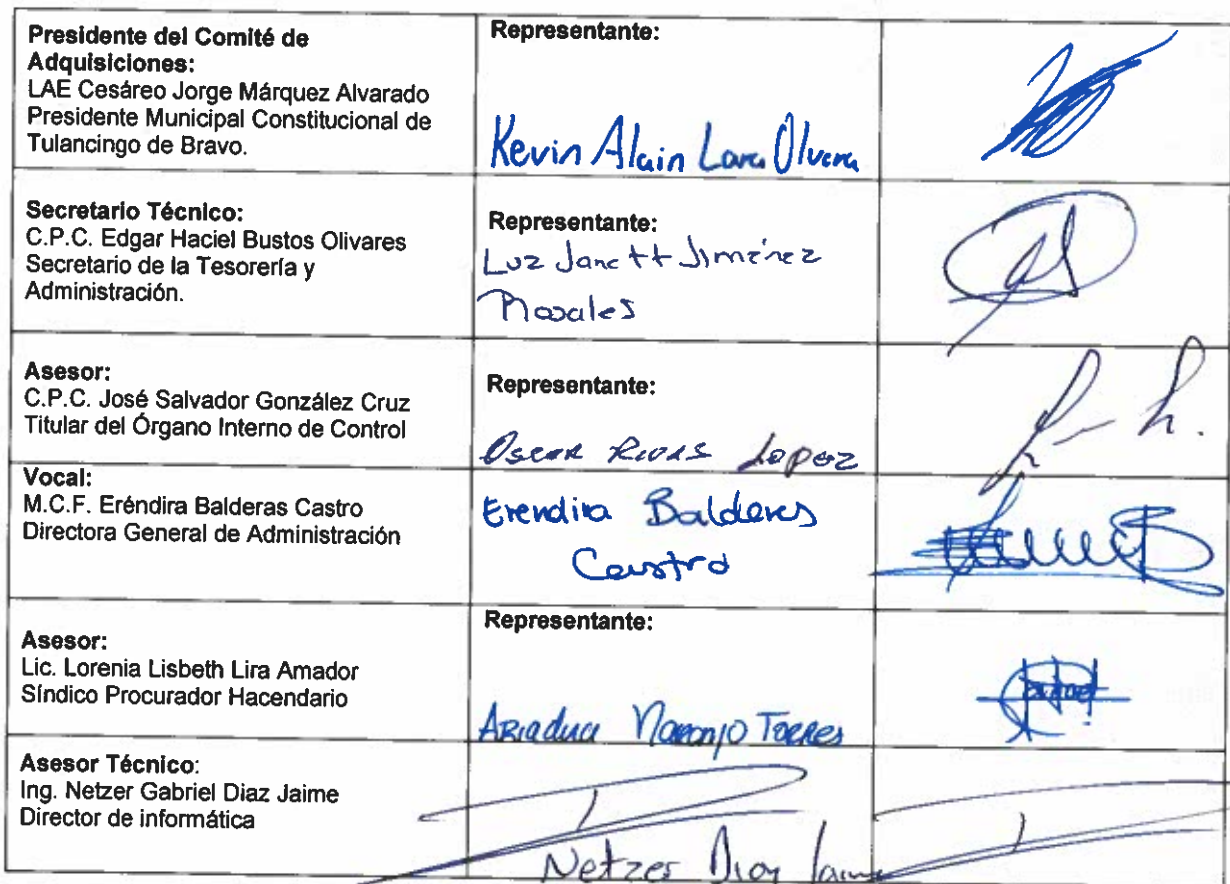 Presidente del Comité de
Adquisiciones:
LAE Cesáreo Jorge Márquez Alvarado
Presidente Municipal Constitucional de
Tulancingo de Bravo.
Representante:
Kevin Alain Lara Olvera
Secretario Técnico:
C.P.C. Edgar Haciel Bustos Olivares
Secretario de la Tesorería y
Administración.
Representante:
Luz Janett Jiménez
Rosales
Asesor:
C.P.C. José Salvador González Cruz
Titular del Órgano Interno de Control
Representante:
Oscar Rivas Lopez
Vocal:
M.C.F. Eréndira Balderas Castro
Directora General de Administración
Erendira Balderas
Castro
Asesor:
Lic. Lorenia Lisbeth Lira Amador
Síndico Procurador Hacendario
Representante:
Ariadna Naranjo Torres
Asesor Técnico:
Ing. Netzer Gabriel Diaz Jaime
Director de informática
Netzer Diaz Jaime